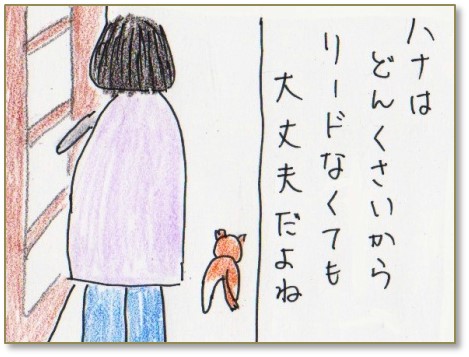 ハナは
どんくさいから
リードなくても
大丈夫だよね